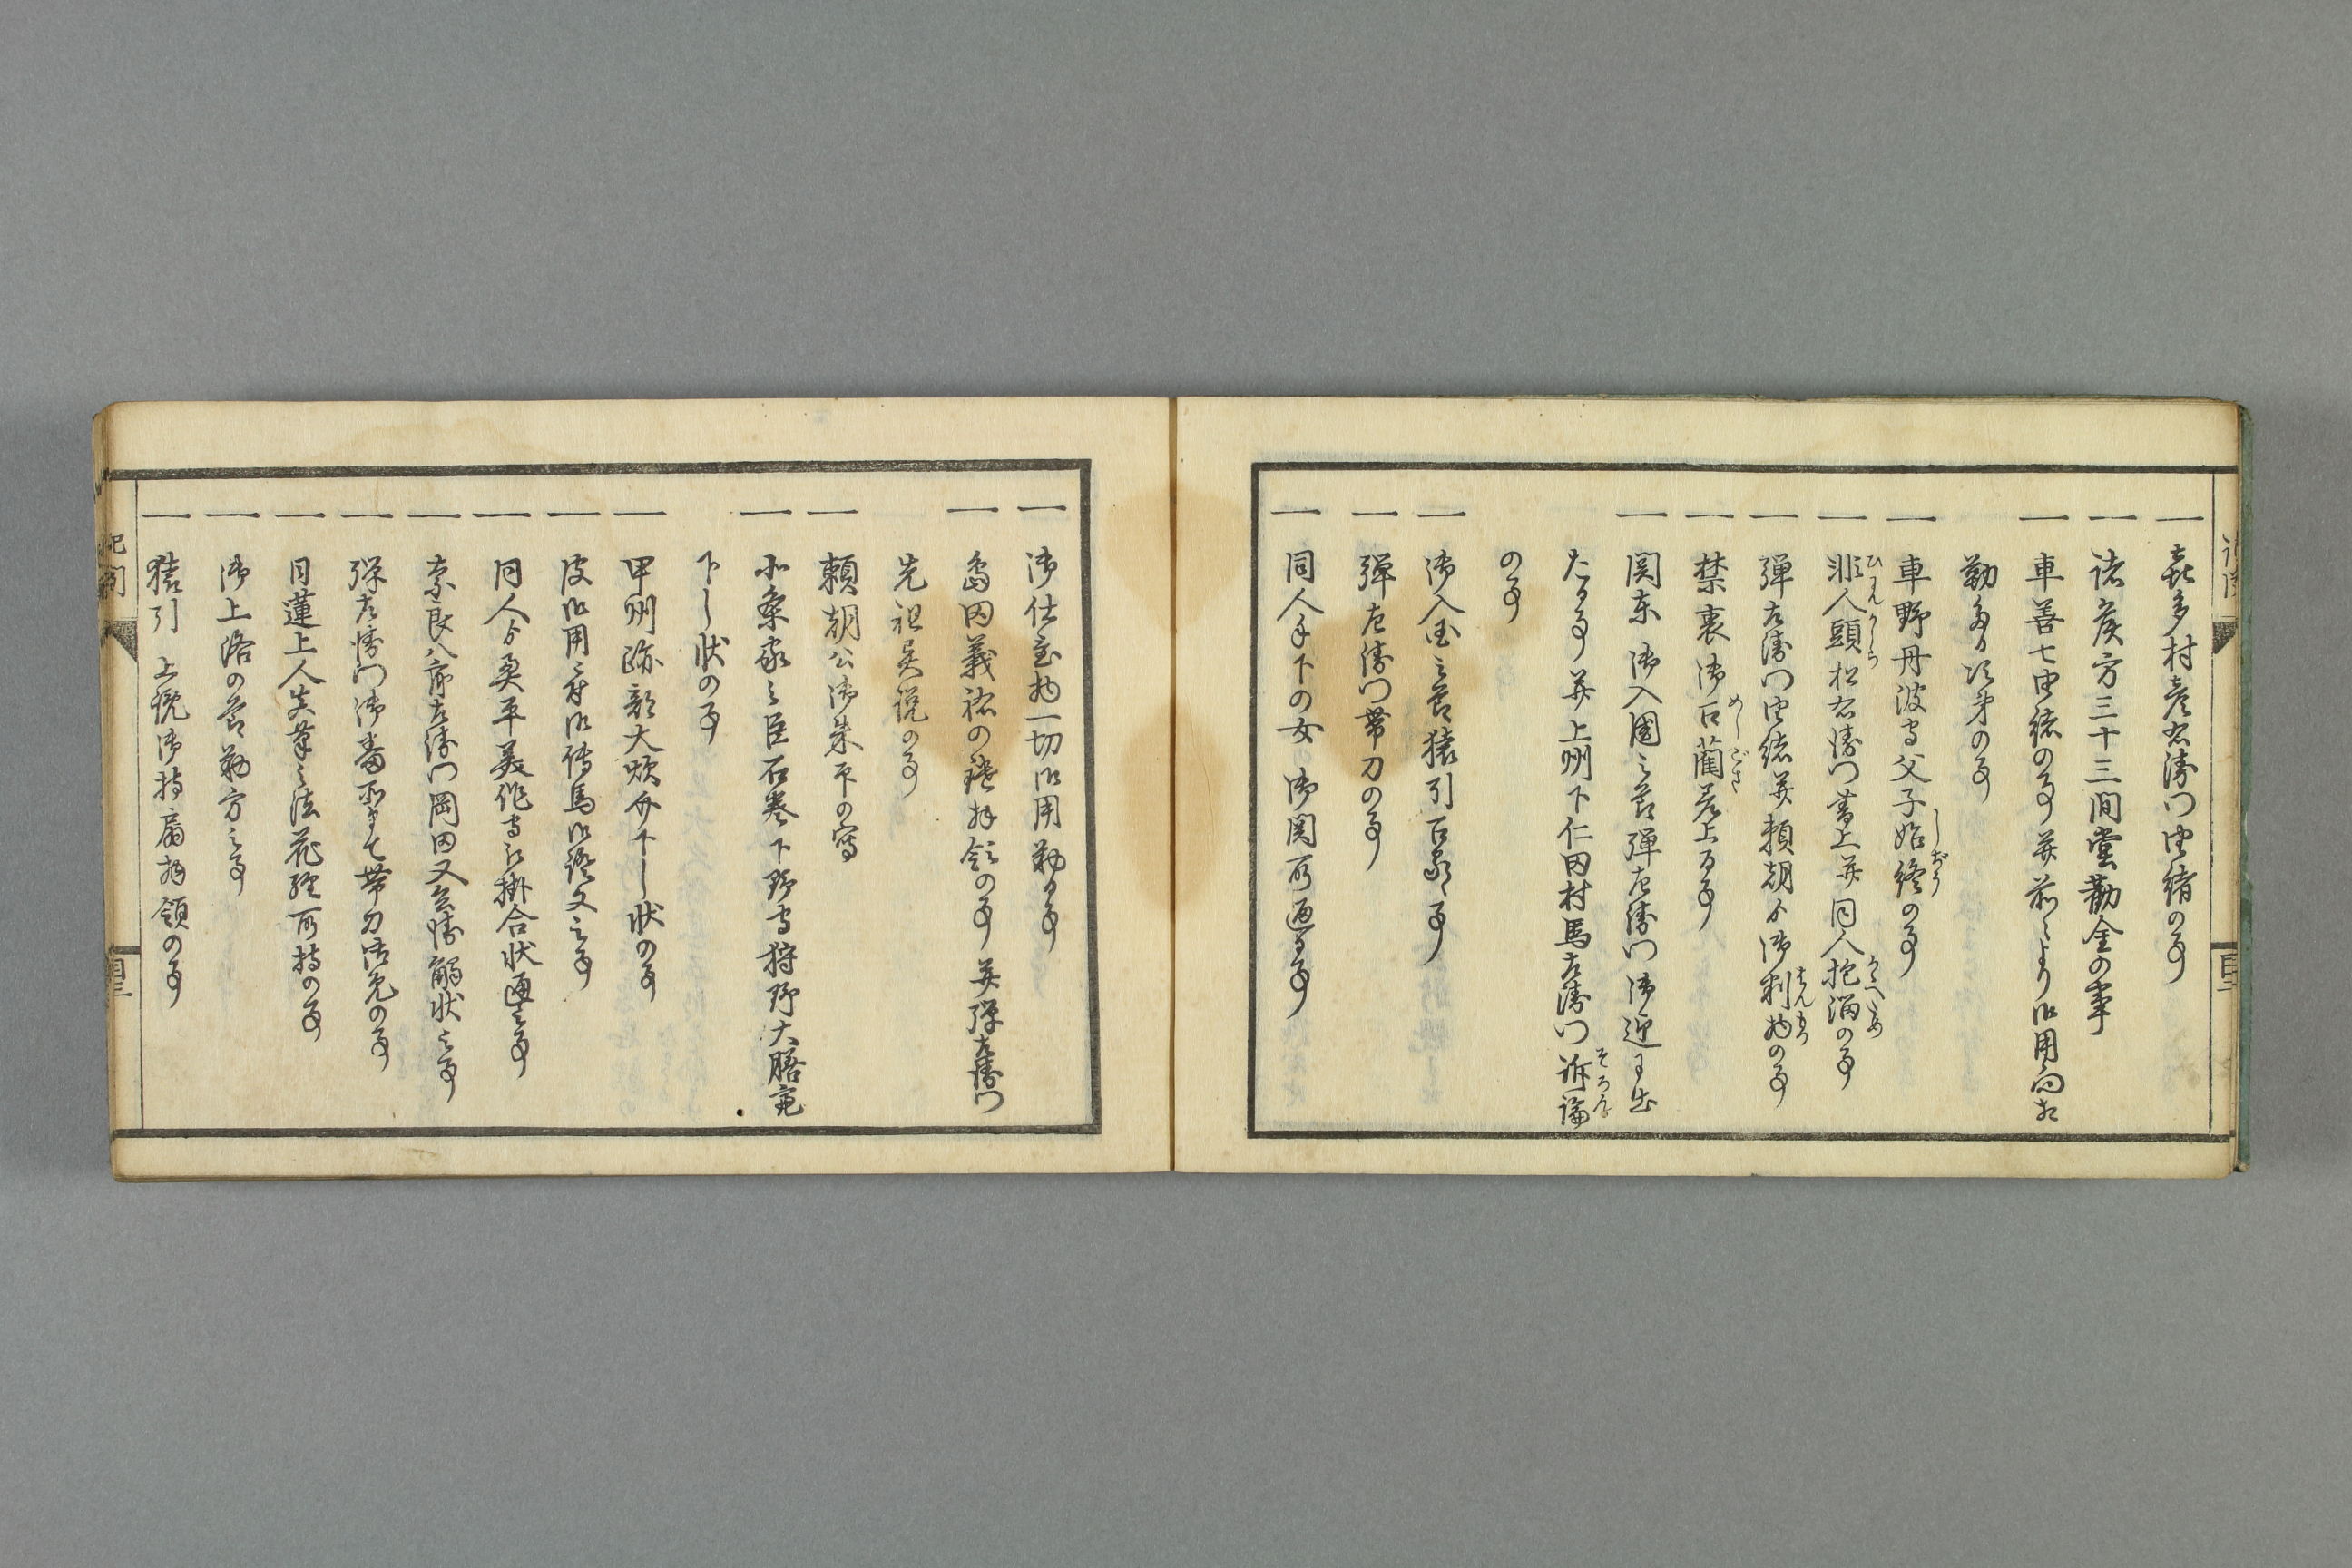 一 喜多村彦右衛門由緒の事
一 諸侯方三十三間堂勧金の事
一 車善七由緒の事并前々より御用向相
勤る次第の事
一 車野丹波守父子始終の事
一 非人頭松右衛門書上并同人抱溜の事
一 弾左衛門由緒并頼朝ゟ御判物の事
一 禁裏御召藺差上る事
一 関東御入国之節弾左衛門御迎に出
たる事并上州下仁田村馬左衛門訴論
の事
一 御入国之節猿引召る事
一 弾左衛門帯刀の事
一 同人手下の女御関所通る事
一 御仕置物一切御用勤る事
一 島田義祐の鑓拝領の事并弾左衛門
先祖異説の事
一 頼朝公御朱印の写
一 小条家之臣石巻下野守狩野大膳亮
下し状の事
一 甲州弥郎大炊介下し状の事
一 皮御用に付御伝馬御証文之事
一 同人ゟ奥平美作守江掛合状通之事
一 奈良八郎左衛門岡田又兵衛觸状之事
一 弾左衛門御番所にて帯刀御免の事
一 日蓮上人真筆之法花経所持の事
一 御上洛の節勤方之事
一 猿引 上覧御持扇拝領の事